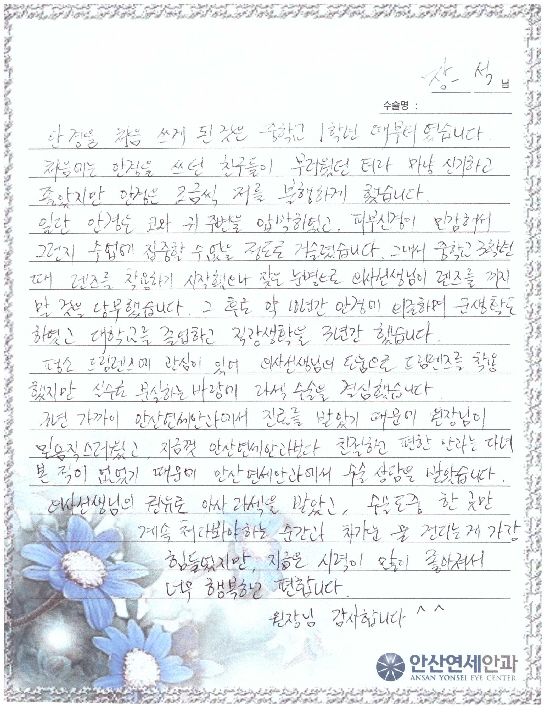 창 석 님
수술명 :
안경을 처음 쓰게 된 것은 중학교 1학년 때부터 였습니다.
처음에는 안경을 쓰던 친구들이 부러웠던 터라 마냥 신기하고
좋았지만 안경은 조금씩 저를 불행하게 했습니다.
일단 안경은 코와 귀 주변을 압박하였고, 피부신경이 민감해서
그런지 수업에 집중할 수 없을 정도로 거슬렸습니다. 그래서 중학교 3학년
때 렌즈를 착용하기 시작했으나 잦은 눈병으로 의사선생님이 렌즈를 끼지
말 것을 당부했습니다. 그 후로 약 10년간 안경에 의존하며 군생활도
하였고 대학교를 졸업하고 직장생활을 3년간 했습니다.
평소 드림렌즈에 관심이 있어 의사선생님의 도움으로 드림렌즈를 착용
했지만 실수로 분실하는 바람에 라섹 수술을 결심했습니다.
3년 가까이 안산연세안과에서 진료를 받았기 때문에 원장님이
믿음직스러웠고 지금껏 안산연세안과보다 친절하고 편한 안과는 다녀
본 적이 없었기 때문에 안산연세안과에서 수술 상담을 받았습니다.
의사선생님의 권유로 아사 라섹을 받았고, 수술도중 한 곳만
계속 쳐다봐야하는 순간과 차가운 물 견디는게 가장
힘들었지만, 지금은 시력이 많이 좋아져서
너무 행복하고 편합니다.
원장님 감사합니다 ^^
안산연세안과
ANSAN YONSEI EYE CENTER